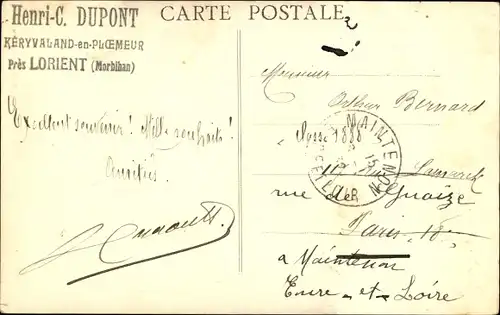 Henri-C. DUPONT
KÉRYVALAND-en-PLŒMEUR
Près LORIENT (Morbihan)
CARTE POSTALE
Excellent souvenir! Mille souhaits!
Amitiés
Dupont
Monsieur
Arthur Bernard
classe 1888
rue Lamarck
rue de Guaize
Paris 18
à Maintenon
Eure-et-Loire
MAINTENON